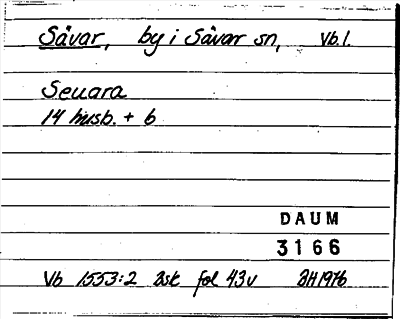 Sävar, by i Sävar sn, Vb.l.
Seuara
14 husb. + 6
DAUM
3166
Vb 1553:2 Bsk fol 43v BH1976